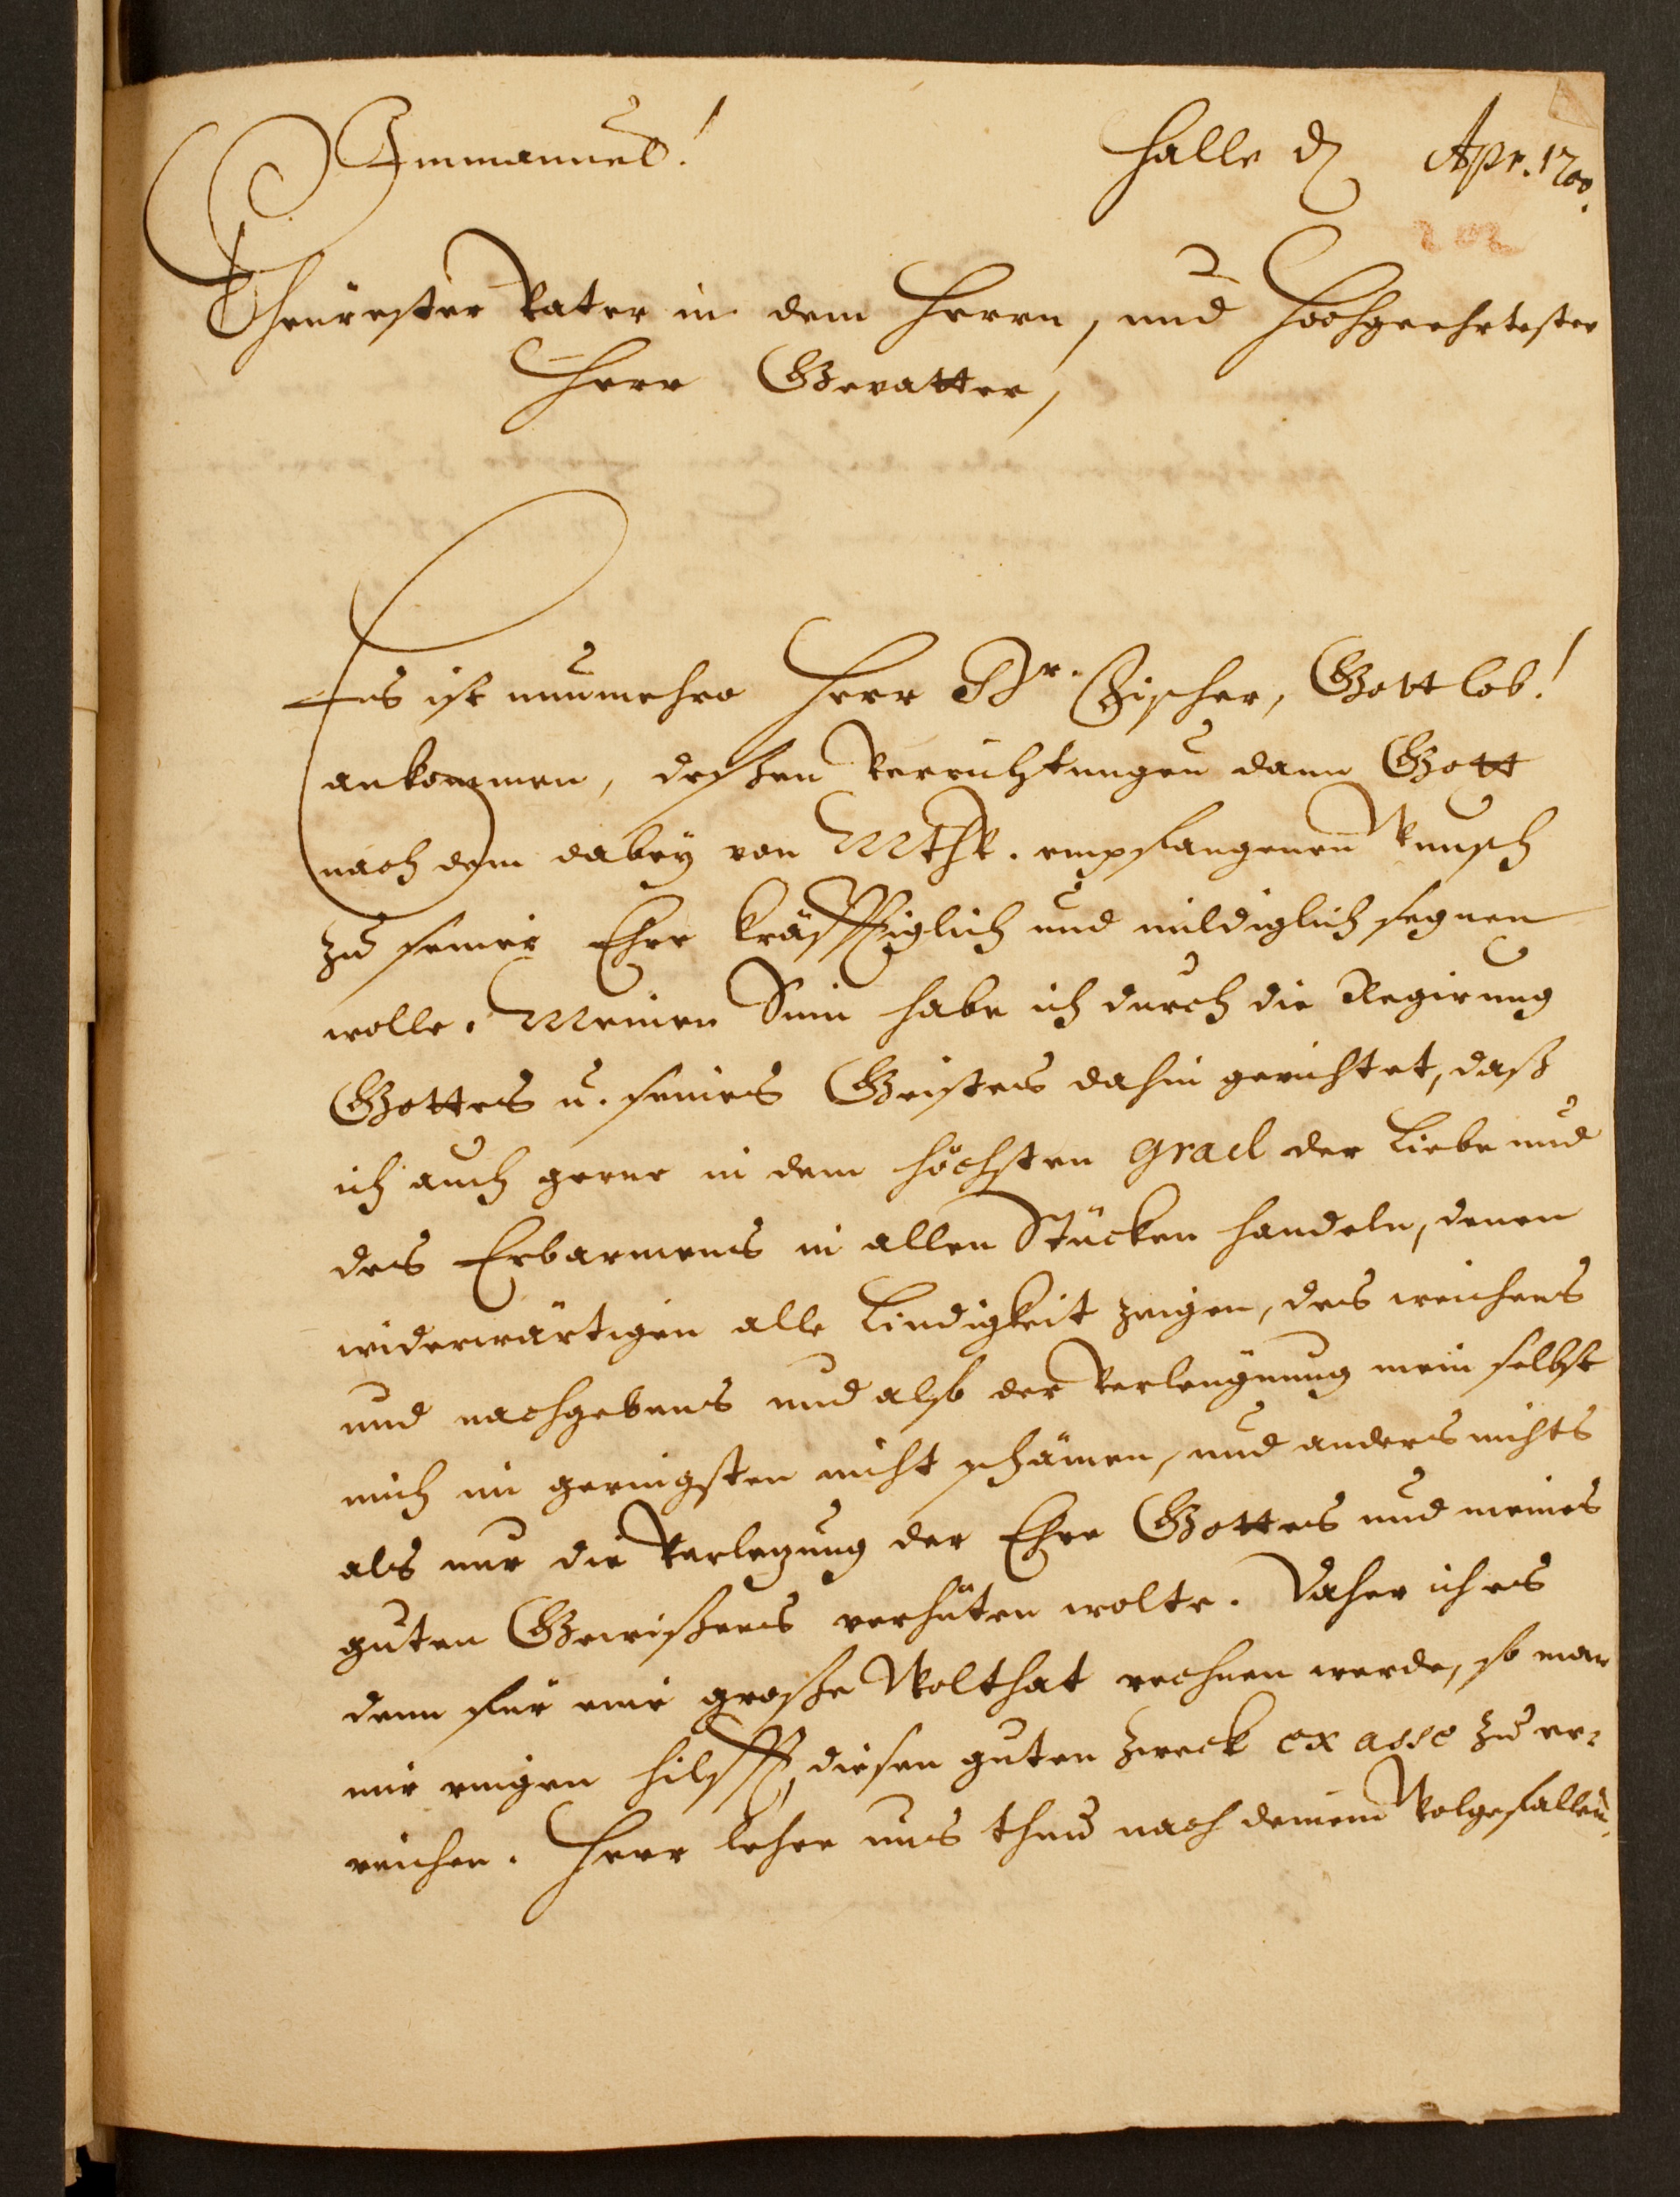 Immanuel! Halle d. Apr. 1700.
202
Theürester Vater in dem Herrn, und Hochgeehrtester
Herr Gevatter,
Es ist nunmehro Herr Dr. Fischer, Gottlob!
ankommen, deßen Verrichtungen dann Gott
nach dem dabey von empfangenen Wunsch
zu seiner Ehre kräfftiglich und mildiglich segnen
wolle. Meinen Sinn habe ich durch die Regirung
Gottes u. seines Geistes dahin gerichtet, daß
ich auch gerne in dem höchsten grad der Liebe und
des Erbarmens in allen Stücken handeln, denen
widerwärtigen alle Lindigkeit zeigen, des weichens
und nachgebens und also der Verleugnung mein selbst
mich im geringsten nicht schämen, und anders nichts
als nur die Verletzung der Ehre Gottes und meines
guten Gewißens verhüten wolte. Daher ich es
denn für eine große Wolthat rechnen werde, so man
mir einigen hilfft, diesen guten Zweck ex asse zu er-
reichen. Herr lehre uns thun nach deinem Wolgefallen.